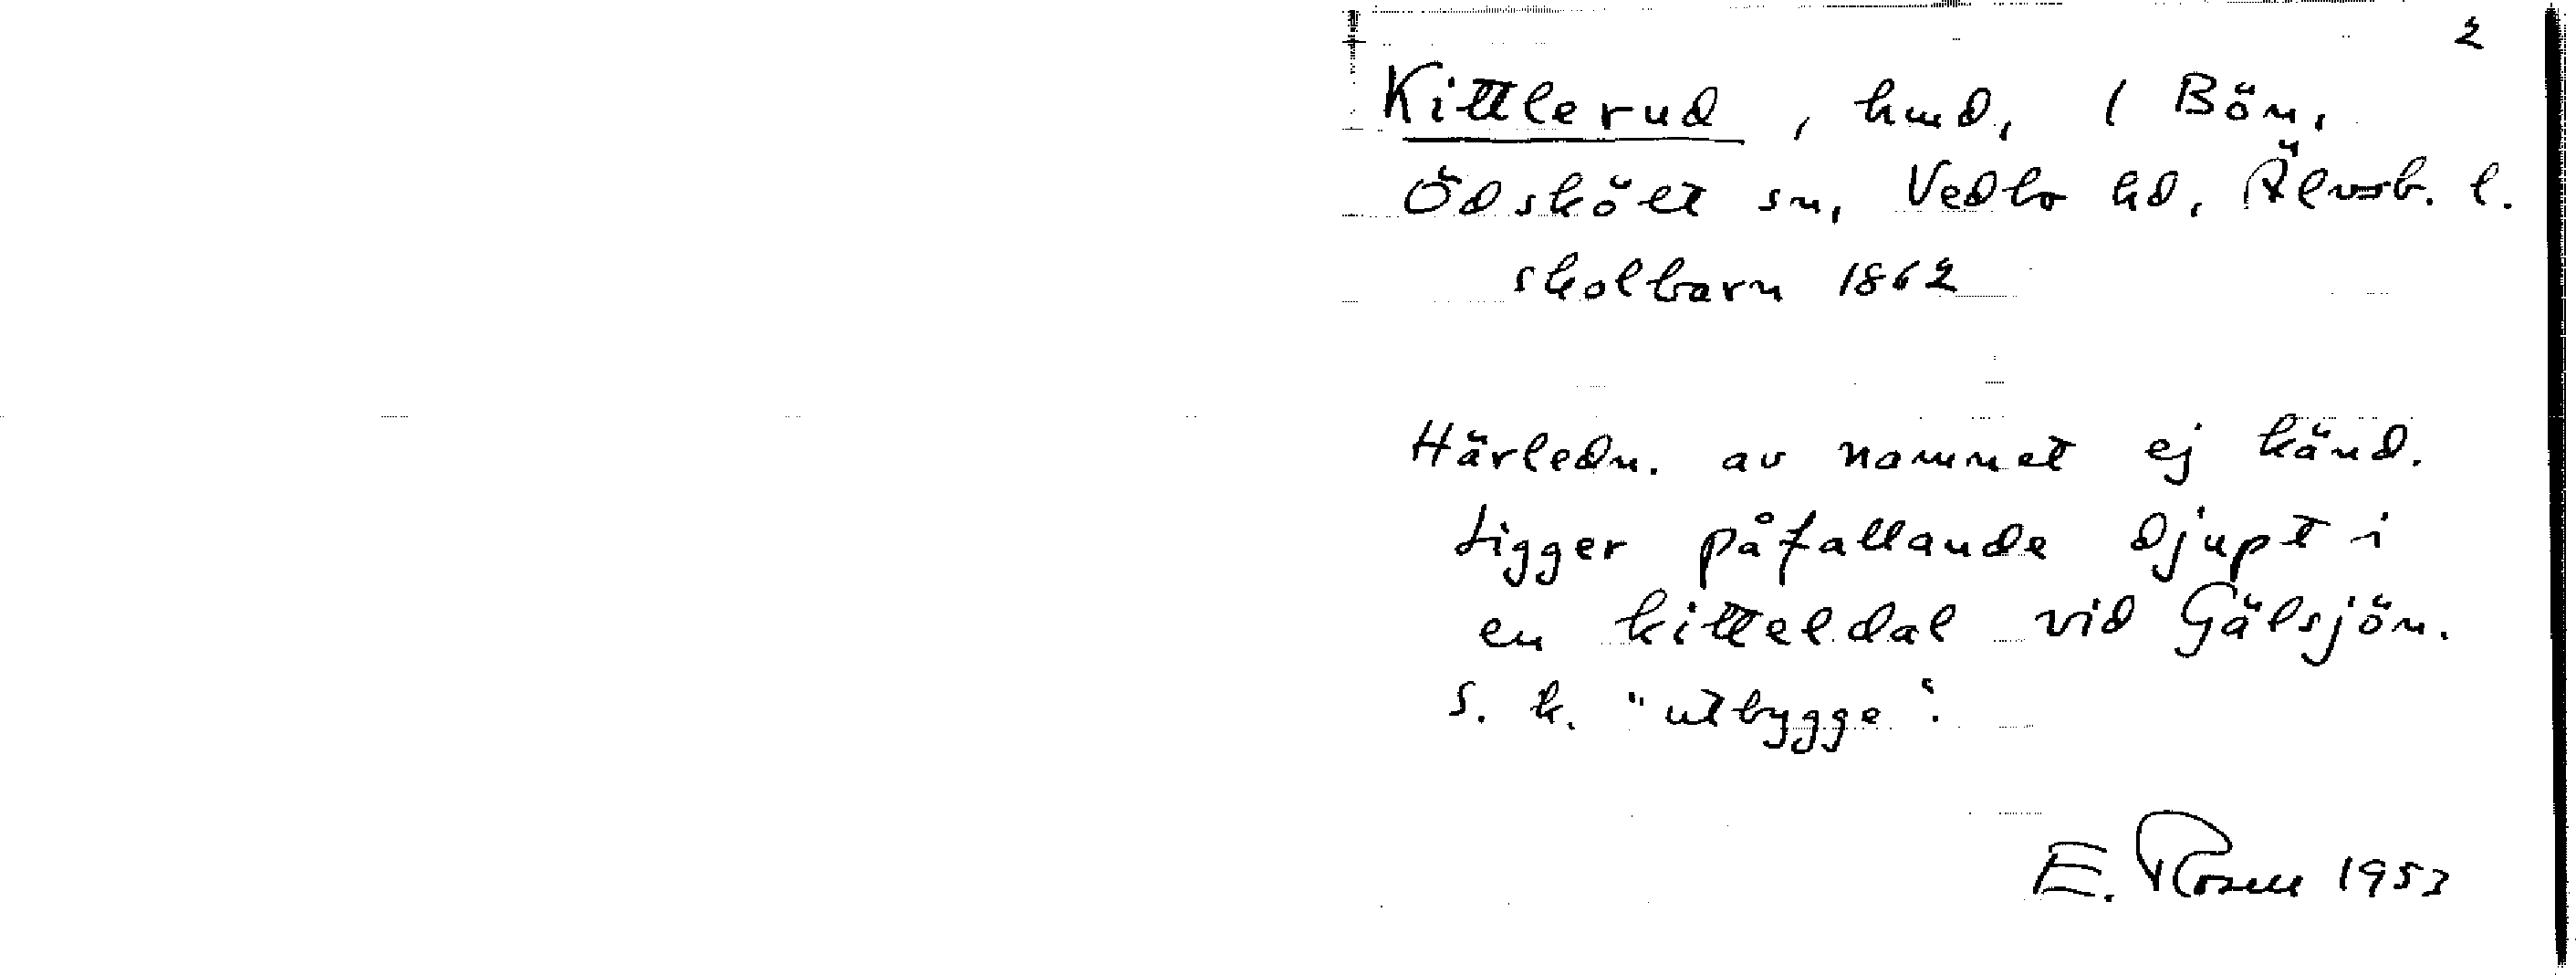 2
Kittlerud, hmd, ( Bön,
Ödskölt sn, Vedbo hd, Älvsb. l.
skolbarn 1862
Härledn. av namnet ej känd.
Ligger påfallande djupt i
en kitteldal vid Gälsjön.
S. k. "utbygge".
E. Rosell 1953